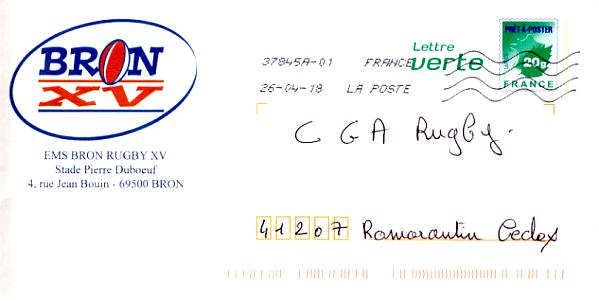 BRON
XV
EMS BRON RUGBY XV
Stade Pierre Duboeuf
4, rue Jean Bouin - 69500 BRON
37845A-01 FRANCE
25-04-18 LA POSTE
Lettre
verte
PRÊT-À-POSTER
20g
FRANCE
C G A Rugby.
41207 Romorantin Cedex